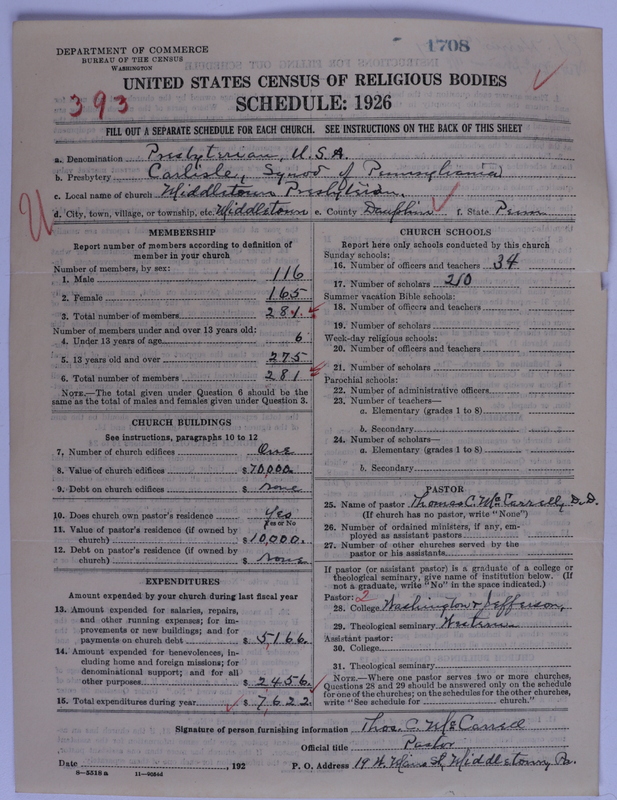 1708
DEPARTMENT OF COMMERCE
BUREAU OF THE CENSUS
WASHINGTON
UNITED STATES CENSUS OF RELIGIOUS BODIES
393
SCHEDULE: 1926
FILL OUT A SEPARATE SCHEDULE FOR EACH CHURCH. SEE INSTRUCTIONS ON THE BACK OF THIS SHEET
a. Denomination Presbyterian, U.S.A.
b. Presbytery Carlisle, Synod of Pennsylvania
c. Local name of church Middletown Presbyterian,
d. City, town, village, or township, etc. Middletown e. County Dauphin f. State Penna
MEMBERSHIP
Report number of members according to definition of
member in your church
Number of members, by sex:
1. Male 116
2. Female 165
3. Total number of members 281
Number of members under and over 13 years old:
4. Under 13 years of age 6
5. 13 years old and over 275
6. Total number of members 281
NOTE.—The total given under Question 6 should be
same as the total of males and females given under Question 3.
CHURCH BUILDINGS
See instructions, paragraphs 10 to 12
7. Number of church edifices One
8. Value of church edifices $70,000.
9. Debt on church edifices $ none
10. Does church own pastor's residence Yes
Yes or No
11. Value of pastor's residence (if owned by
church) $10,000.
12. Debt on pastor's residence (if owned by
church) $ none
EXPENDITURES
Amount expended by your church during last fiscal year
13. Amount expended for salaries, repairs,
and other running expenses; for im-
provements or new buildings; and for
payments on church debt $5,166.
14. Amount expended for benevolences, in-
cluding home and foreign missions; for
denominational support; and for all
other purposes $2456.
15. Total expenditures during year $7,622
CHURCH SCHOOLS
Report here only schools conducted by this church
Sunday schools:
16. Number of officers and teachers 34
17. Number of scholars 210
Summer vacation Bible schools:
18. Number of officers and teachers
19. Number of scholars
Week-day religious schools:
20. Number of officers and teachers
21. Number of scholars
Parochial schools:
22. Number of administrative officers
23. Number of teachers—
a. Elementary (grades 1 to 8)
b. Secondary
24. Number of scholars—
a. Elementary (grades 1 to 8)
b. Secondary
PASTOR
25. Name of pastor Thomas C. McCarrell, D.D.
(If church has no pastor, write "None")
26. Number of ordained ministers, if any, em-
ployed as assistant pastors
27. Number of other churches served by the
pastor or his assistants
If pastor (or assistant pastor) is a graduate of a college or
theological seminary, give name of institution below. (If
not a graduate, write "No" in the space indicated.)
Pastor: 2
28. College Washington & Jefferson,
29. Theological seminary Western
Assistant pastor:
30. College
31. Theological seminary
NOTE.—Where one pastor serves two or more churches,
Questions 28 and 29 should be answered only on the schedule
for one of the churches; on the schedules for the other churches,
write "See schedule for church."
Signature of person furnishing information Thos. C. McCarrell
Official title Pastor
Date , 192 P. O. Address 19 W. Main St, Middletown, Pa.
8—5518 a 11—9084d